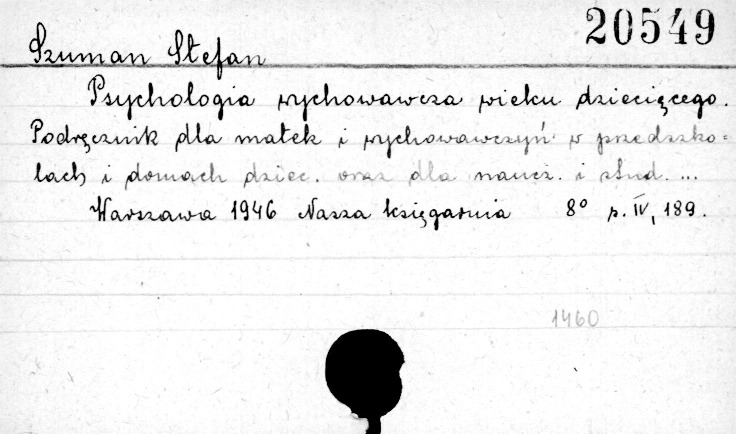 20549
Szuman Stefan
Psychologia wychowawcza wieku dziecięcego.
Podręcznik dla matek i wychowawczyń w przedszko=
lach i domach dziec. oraz dla naucz. i stud. ...
Warszawa 1946 Nasza księgarnia 8° p. IV, 189.
1460